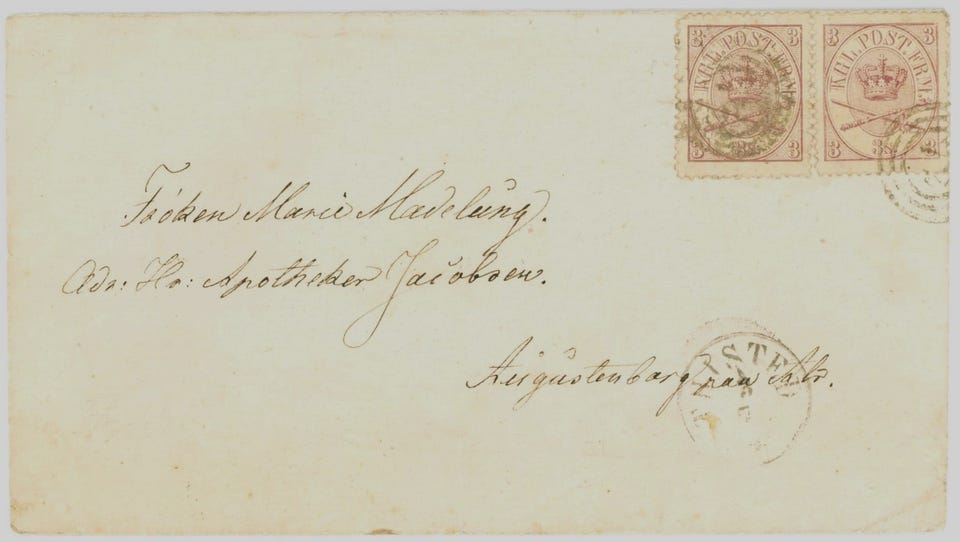 3 KGL. POST. FRM. 3
3 3S 3
3 KGL. POST. FRM. 3
3 3S 3
Frøken Marie Madelung.
Adr: Hr: Apotheker Jacobsen.
Augustenborg paa Als.
THISTED